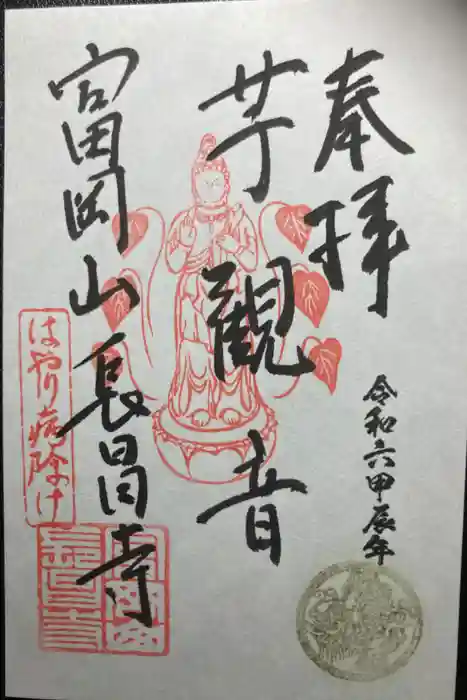 奉拝
令和六甲辰年
芋観音
富岡山長昌寺
はやり病除け